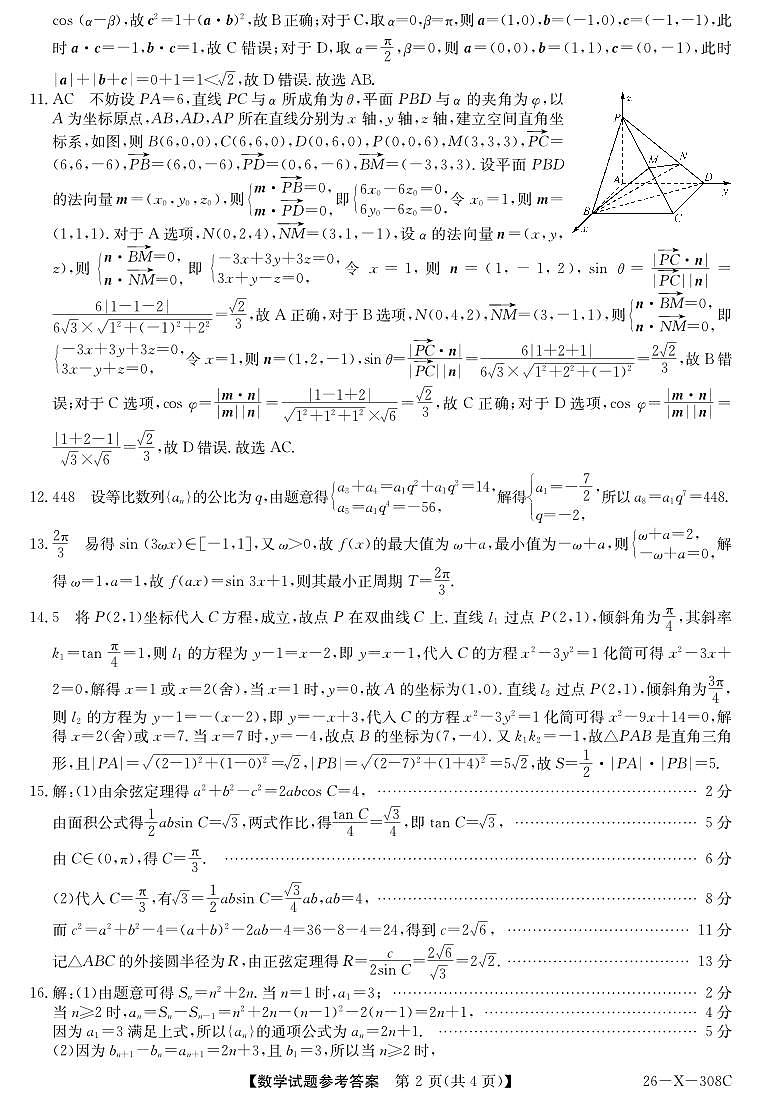 cos (α－β),故 c²=1+(a·b)²,故B正确;对于C,取α=0,β=π,则a=(1,0),b=(-1,0),c=(-1,-1),此
时 a·c=-1,b·c=1,故C错误;对于D,取α=π/2,β=0,则a=(0,0),b=(1,1),c=(0,-1),此时
|a|+|b+c|=0+1=1<√2,故D错误.故选AB.
11. AC 不妨设PA=6,直线PC与α所成角为θ,平面PBD与α的夹角为φ,以
A为坐标原点,AB,AD,AP所在直线分别为x轴,y轴,z轴,建立空间直角坐
标系,如图,则B(6,0,0),C(6,6,0),D(0,6,0),P(0,0,6),M(3,3,3),PC→=
(6,6,-6),PB→=(6,0,-6),PD→=(0,6,-6),BM→=(-3,3,3).设平面PBD
的法向量m=(x₀,y₀,z₀),则{m·PB→=0, m·PD→=0, 即{6x₀-6z₀=0, 6y₀-6z₀=0, 令x₀=1,则m=
(1,1,1).对于A选项,N(0,2,4),NM→=(3,1,-1),设α的法向量n=(x,y,
z),则{n·BM→=0, n·NM→=0, 即{-3x+3y+3z=0, 3x+y-z=0, 令x=1,则n=(1,-1,2),sin θ=|PC→·n|/|PC→||n|=
6|1-1-2|/(6√3×√(1²+(-1)²+2²))=√2/3,故A正确,对于B选项,N(0,4,2),NM→=(3,-1,1),则{n·BM→=0, n·NM→=0, 即
{-3x+3y+3z=0, 3x-y+z=0, 令x=1,则n=(1,2,-1),sin θ=|PC→·n|/|PC→||n|=6|1+2+1|/(6√3×√(1²+2²+(-1)²))=2√2/3,故B错
误;对于C选项,cos φ=|m·n|/|m||n|=|1-1+2|/(√(1²+1²+1²)×√6)=√2/3,故C正确;对于D选项,cos φ=|m·n|/|m||n|=
|1+2-1|/(√3×√6)=√2/3,故D错误.故选AC.
z
P
M
N
A
D
y
B
C
x
12. 448 设等比数列{aₙ}的公比为q,由题意得{a₃+a₄=a₁q²+a₁q³=14, a₅=a₁q⁴=-56, 解得{a₁=-7/2, q=-2, 所以a₈=a₁q⁷=448.
13. 2π/3 易得sin (3ωx)∈[-1,1],又ω>0,故f(x)的最大值为ω+a,最小值为-ω+a,则{ω+a=2, -ω+a=0, 解
得ω=1,a=1,故f(ax)=sin 3x+1,则其最小正周期T=2π/3.
14. 5 将P(2,1)坐标代入C方程,成立,故点P在双曲线C上.直线l₁过点P(2,1),倾斜角为π/4,其斜率
k₁=tan π/4=1,则l₁的方程为y-1=x-2,即y=x-1,代入C的方程x²-3y²=1化简可得x²-3x+
2=0,解得x=1或x=2(舍),当x=1时,y=0,故A的坐标为(1,0).直线l₂过点P(2,1),倾斜角为3π/4,
则l₂的方程为y-1=-(x-2),即y=-x+3,代入C的方程x²-3y²=1化简可得x²-9x+14=0,解
得x=2(舍)或x=7.当x=7时,y=-4,故点B的坐标为(7,-4).又k₁k₂=-1,故△PAB是直角三角
形,且|PA|=√((2-1)²+(1-0)²)=√2,|PB|=√((2-7)²+(1+4)²)=5√2,故S=1/2·|PA|·|PB|=5.
15. 解:(1)由余弦定理得a²+b²-c²=2abcos C=4, ………… 2分
由面积公式得1/2 absin C=√3,两式作比,得tan C/4=√3/4,即tan C=√3, ………… 5分
由C∈(0,π),得C=π/3. ………… 6分
(2)代入C=π/3,有√3=1/2 absin C=√3/4 ab,ab=4, ………… 8分
而c²=a²+b²-4=(a+b)²-2ab-4=36-8-4=24,得到c=2√6, ………… 11分
记△ABC的外接圆半径为R,由正弦定理得R=c/2sin C=2√6/√3=2√2. ………… 13分
16. 解:(1)由题意可得Sₙ=n²+2n.当n=1时,a₁=3; ………… 2分
当n≥2时,aₙ=Sₙ-Sₙ₋₁=n²+2n-(n-1)²-2(n-1)=2n+1, ………… 4分
因为a₁=3满足上式,所以{aₙ}的通项公式为aₙ=2n+1. ………… 5分
(2)因为bₙ₊₁-bₙ=aₙ₊₁=2n+3,且b₁=3,所以当n≥2时,
【数学试题参考答案 第2页(共4页)】 26-X-308C